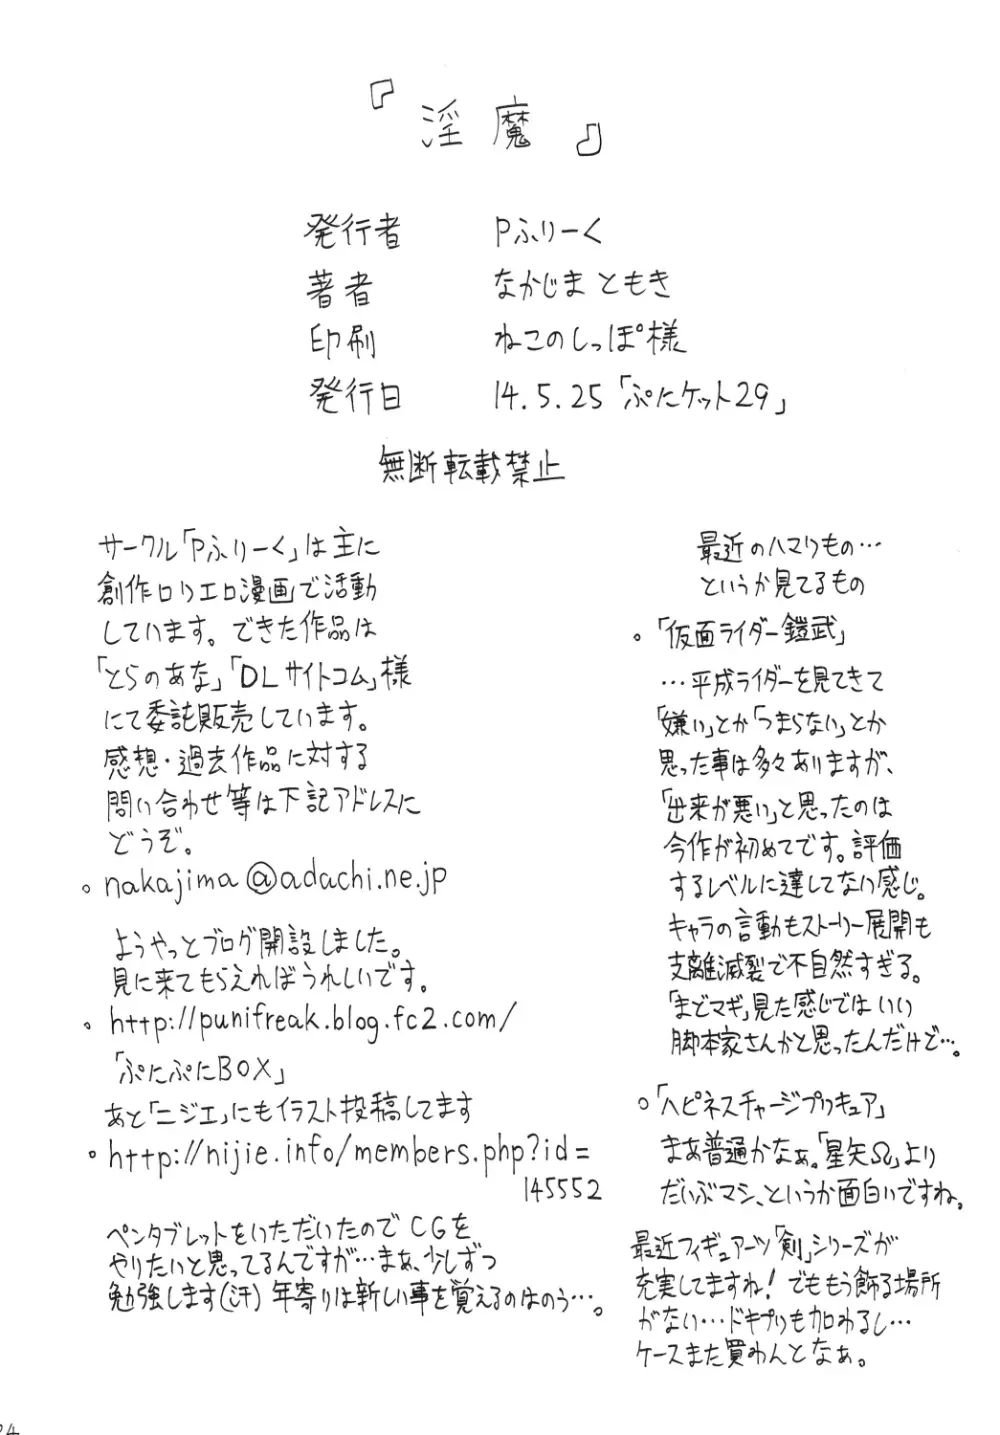 『淫魔』
発行者 Pふりーく
著者 なかじまともき
印刷 ねこのしっぽ様
発行日 14.5.25「ぷにケット29」
無断転載禁止
サークル「Pふりーく」は主に
創作ロリエロ漫画で活動
しています。できた作品は
「とらのあな」「DLサイトコム」様
にて委託販売しています。
感想・過去作品に対する
問い合わせ等は下記アドレスに
どうぞ。
。nakajima@adachi.ne.jp
ようやっとブログ開設しました。
見に来てもらえればうれしいです。
。http://punifreak.blog.fc2.com/
「ぷにぷにBOX」
あと「ニジエ」にもイラスト投稿してます
。http://nijie.info/members.php?id=
145552
ペンタブレットをいただいたのでCGを
やりたいと思ってるんですが…まぁ、少しずつ
勉強します(汗) 年寄りは新しい事を覚えるのはのぅ…。
最近のハマりもの…
というか見てるもの
。「仮面ライダー鎧武」
…平成ライダーを見てきて
「嫌い」とか「つまらない」とか
思った事は多々ありますが、
「出来が悪い」と思ったのは
今作が初めてです。評価
するレベルに達してない感じ。
キャラの言動もストーリー展開も
支離滅裂で不自然すぎる。
「まどマギ」見た感じではいい
脚本家さんかと思ったんだけど…。
○「ハピネスチャージプリキュア」
まあ普通かなぁ。「星矢Ω」より
だいぶマシ、というか面白いですね。
最近フィギュアーツ「剣」シリーズが
充実してますね！でももう飾る場所
がない…ドキプリも加わるし…
ケースまた買わんとなぁ。
24